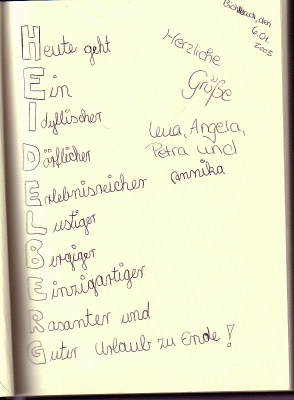 Bichlbach, den
6.01.
2003
Herzliche
Grüße
Lena, Angela,
Petra und
Annika
Heute geht
Ein
Idyllischer
Dörflicher
Erlebnisreicher
Lustiger
Bergiger
Einzigartiger
Rasanter und
Guter Urlaub zu Ende!